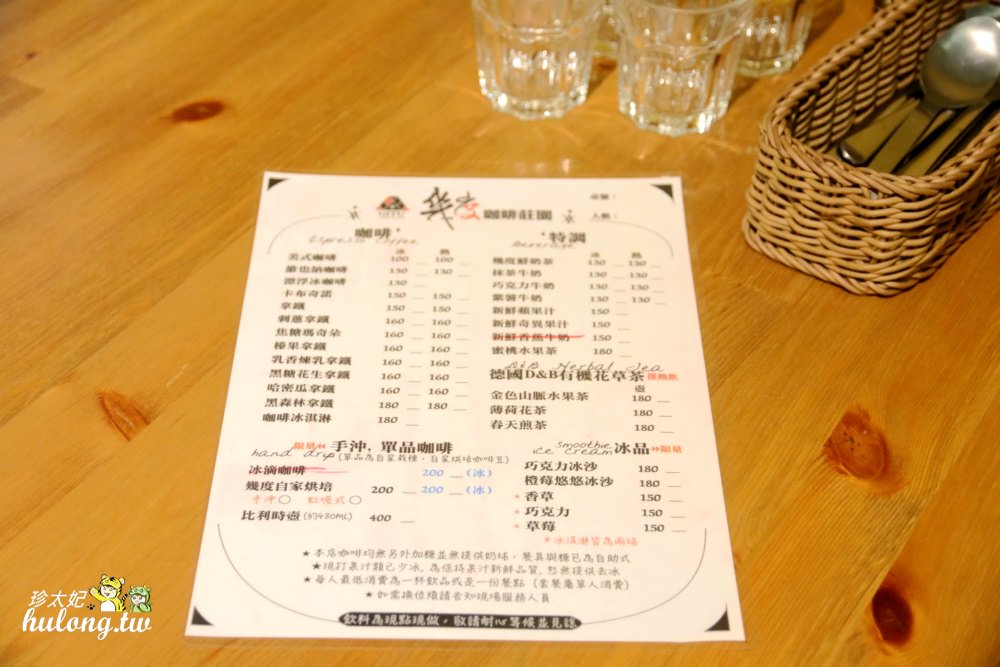 GITU 幾度 咖啡莊園
桌號：
人數：
咖啡
Espresso Coffee
冰 熱
美式咖啡 100 100
維也納咖啡 130 130
漂浮冰咖啡 130
卡布奇諾 150 150
拿鐵 150 150
剌蔥拿鐵 160 160
焦糖瑪奇朵 160 160
榛果拿鐵 160 160
乳香煉乳拿鐵 160 160
黑糖花生拿鐵 160 160
哈密瓜拿鐵 160 160
黑森林拿鐵 180 180
咖啡冰淇淋 180
特調
Beverage
冰 熱
幾度鮮奶茶 130 130
抹茶牛奶 130 130
巧克力牛奶 130 130
紫薯牛奶 130 130
新鮮蘋果汁 150
新鮮奇異果汁 150
新鮮香蕉牛奶 150
蜜桃水果茶 180
D&B Herbal Tea
德國D&B有機花草茶 僅熱飲
壺
金色山脈水果茶 180
薄荷花茶 180
春天煎茶 180
限量 手沖, 單品咖啡
hand drip (單品為自家栽種，自家烘培咖啡豆)
冰滴咖啡 200 (冰)
幾度自家烘培 200 200 (冰)
手沖○ 虹吸式○
比利時壺 (約430ML) 400
smoothie
ice cream 冰品 限量
巧克力冰沙 180
橙莓悠悠冰沙 180
*香草 150
*巧克力 150
*草莓 150
*冰淇淋皆為兩球
★本店咖啡均無另外加糖並無提供奶球，餐具與糖包為自助式
★現打果汁類已少冰, 為保持果汁新鮮品質, 恕無提供去冰
★每人最低消費為一杯飲品或是一份餐點 (套餐屬單人消費)
★如需換位煩請告知現場服務人員
飲料為現點現做，敬請耐心等候並見諒
珍太妃
hulong.tw